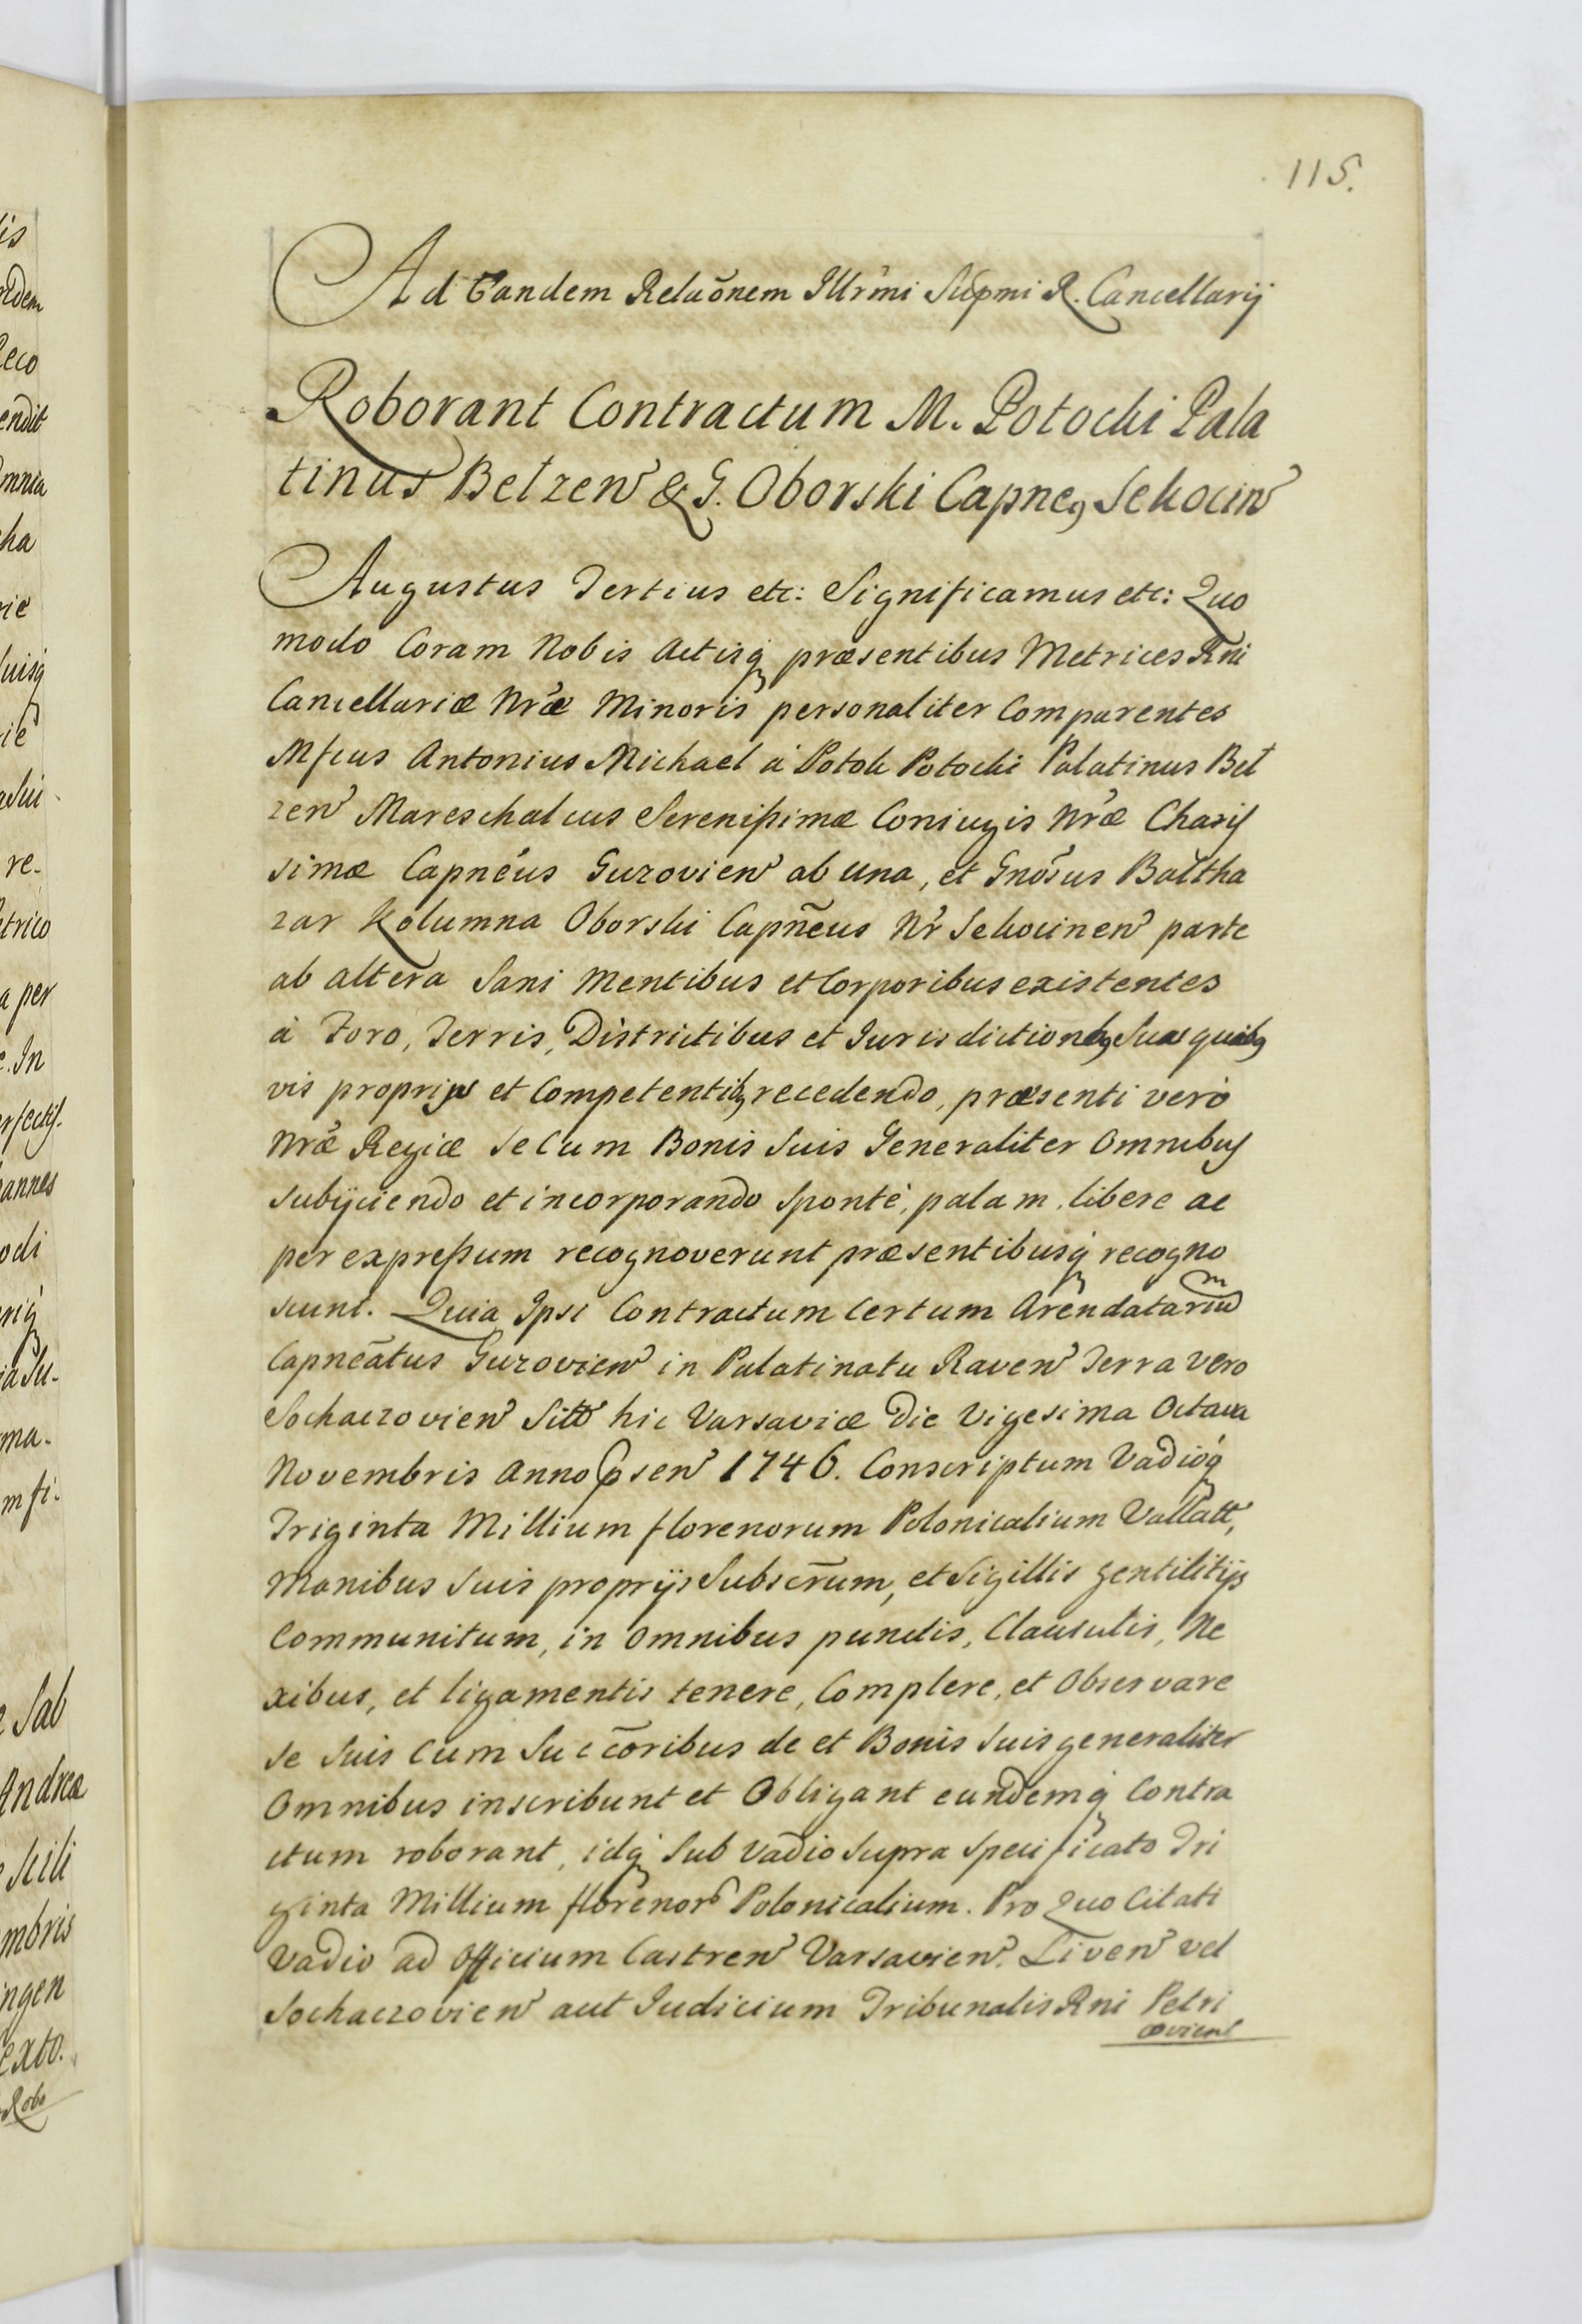 115.
Ad Eandem Relaõnem Illr̃mi Sup̃mi R. Cancellarij
Roborant Contractum M. Potocki Pala
tinus Belzen̄ & G. Oborski Capneꝯ Sekocin̄
Augustus Tertius etc: Significamus etc: Quo
modo Coram Nobis Actisq̢ præsentibus Metrices Rñi
Cancellariæ Nr̃æ Minoris personaliter Comparentes
Mfcus Antonius Michael à Potok Potocki Palatinus Bel
zen̄ Mareschalcus Serenißimæ Coniugis Nr̃æ Charis
simæ Capnẽus Guzovien̄ ab una, et Gnõsus Baltha
zar Kolumna Oborski Capñeus Nr̃ Sekocinen̄ parte
ab altera Sani Mentibus et Corporibus existentes
à Foro, Terris, Districtibus et Iurisdictionibꝯ Suis quibꝯ
vis proprijs et Competentibꝯ recedendo, præsenti verò
Nr̃æ Regiæ Se Cum Bonis Suis Generaliter Omnibus
Subijciendo et incorporando Spontè, palam, libere ac
per expreßum recognoverunt præsentibusq̢ recogno
scunt. Quia Ipsi Contractum Certum Arendatariũ
Capneãtus Guzovien̄ in Palatinatu Raven̄ Terra vero
Sochaczovien̄ Sitt̃ hic Varsaviæ Die Vigesima Octava
Novembris Anno pꝛsen̄ 1746. Conscriptum Vadioq̢
Triginta Millium florenorum Polonicalium Vallatt̃,
Manibus Suis proprijs Subscr̃um, et Sigillis gentilitijs
Communitum, in Omnibus punctis, Clausulis, Ne
xibus, et ligamentis tenere, Complere, et Observare
Se Suis Cum Succõribus de et Bonis Suis generaliter
Omnibus inscribunt et Obligant eundemq̢ Contra
ctum roborant, idq̢ Sub Vadio Supra Specificato Tri
ginta Millium florenorꝯ Polonicalium. Pro Quo Citati
Vadio ad Officium Castren̄ Varsavien̄. Liven̄ vel
Sochaczovien̄ aut Iudicium Tribunalis Rñi Petri
covien̄